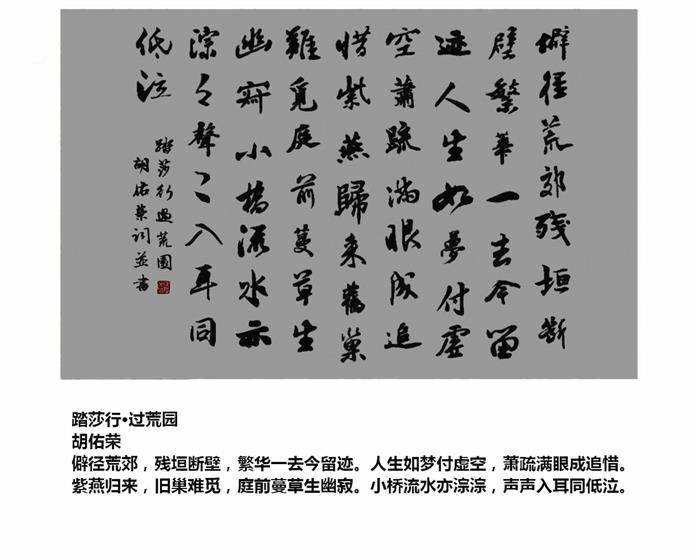 僻徑荒郊殘垣斷
壁繁華一去今留
迹人生如夢付虛
空蕭疏滿眼成追
惜紫燕歸來舊巢
難覓庭前蔓草生
幽寂小橋流水亦
淙々聲々入耳同
低泣
踏莎行過荒園
胡佑榮詞並書
踏莎行•过荒园
胡佑荣
僻径荒郊，残垣断壁，繁华一去今留迹。人生如梦付虚空，萧疏满眼成追惜。
紫燕归来，旧巢难觅，庭前蔓草生幽寂。小桥流水亦淙淙，声声入耳同低泣。